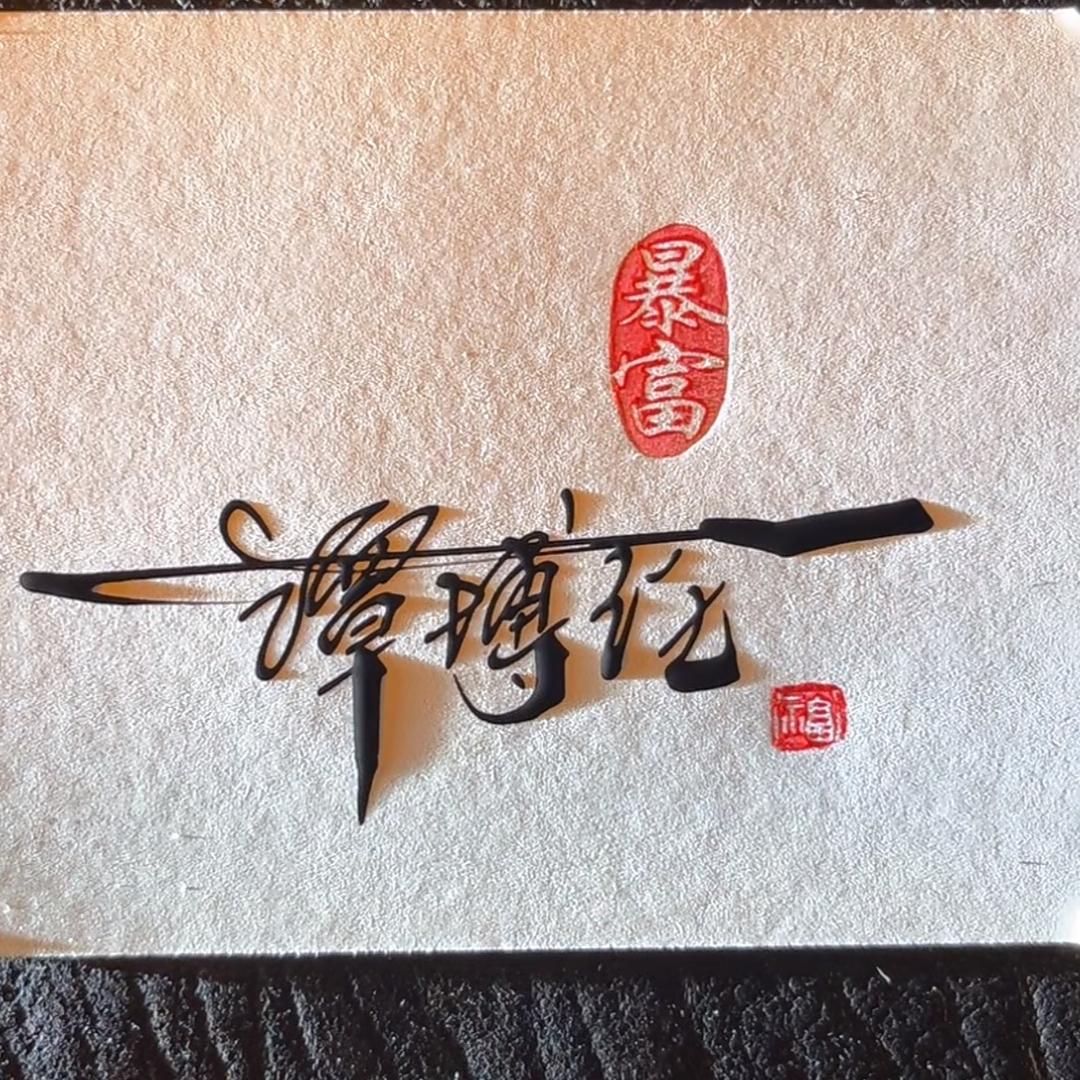 暴富
谭博
福